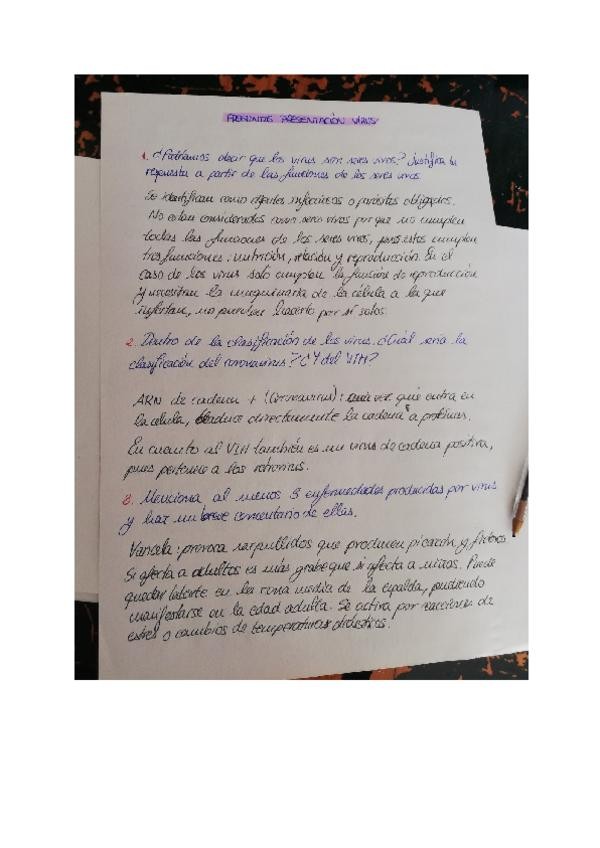 PREGUNTAS PRESENTACIÓN VIRUS
1. ¿Podríamos decir que los virus son seres vivos? Justifica tu
respuesta a partir de las funciones de los seres vivos.
Se identifican como agentes infecciosos o parásitos obligados.
No estan considerados como seres vivos por que no cumplen
todas las funciones de los seres vivos, pues estos cumplen
tres funciones: nutrición, relación y reproducción. En el
caso de los virus solo cumplen la función de reproducción
y necesitan la maquinaria de la célula a la que
infectan, no pueden hacerlo por sí solos.
2. Dentro de la clasificación de los virus. ¿Cuál sería la
clasificación del coronavirus? ¿Y del VIH?
ARN de cadena + (Coronavirus): una vez que entra en
la célula, traduce directamente la cadena a proteínas.
En cuanto al VIH también es un virus de cadena positiva,
pues pertenece a los retrovirus.
3. Menciona al menos 3 enfermedades producidas por virus
y haz un breve comentario de ellas.
Varicela: provoca sarpullidos que producen picazón y fiebre.
Si afecta a adultos es más grabe que si afecta a niños. Puede
quedar latente en la zona media de la espalda, pudiendo
manifestarse en la edad adulta. Se activa por reacciones de
estrés o cambios de temperaturas drásticos.